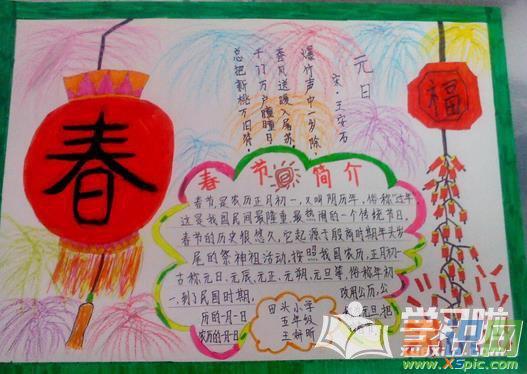 春
福
元日
宋·王安石
爆竹声中一岁除,
春风送暖入屠苏。
千门万户瞳瞳日,
总把新桃
旧符。
春节简介
春节是农历正月初一,又叫阴历年,俗称"过年"
这是我国民间最隆重、最热闹的一个传统节日。
春节的历史很悠久,它起源于殷商时期年头岁
尾的祭神祖活动。按照我国农历,正月初一
古称元日、元辰、元正、元朔、元旦等,俗称年初
一,到了民国时期,
改用公历,公
历的一月一日
元旦,把
农历的一月一日
田头小学
五年级
王妍昕
学识网
www.XSpic.com